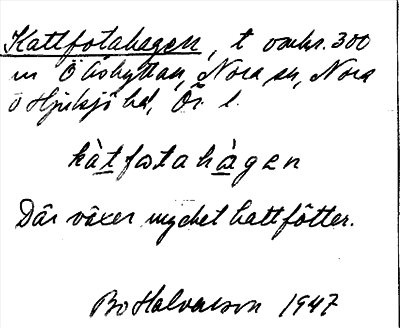 Kattfotahagen, t omkr. 300
m Ö Åshyttan, Nora sn, Nora
o Hjulsjö bd, Ör. l.
kàtfωtahàgen
Där växer mycket kattfötter.
Bo Halvarson 1947